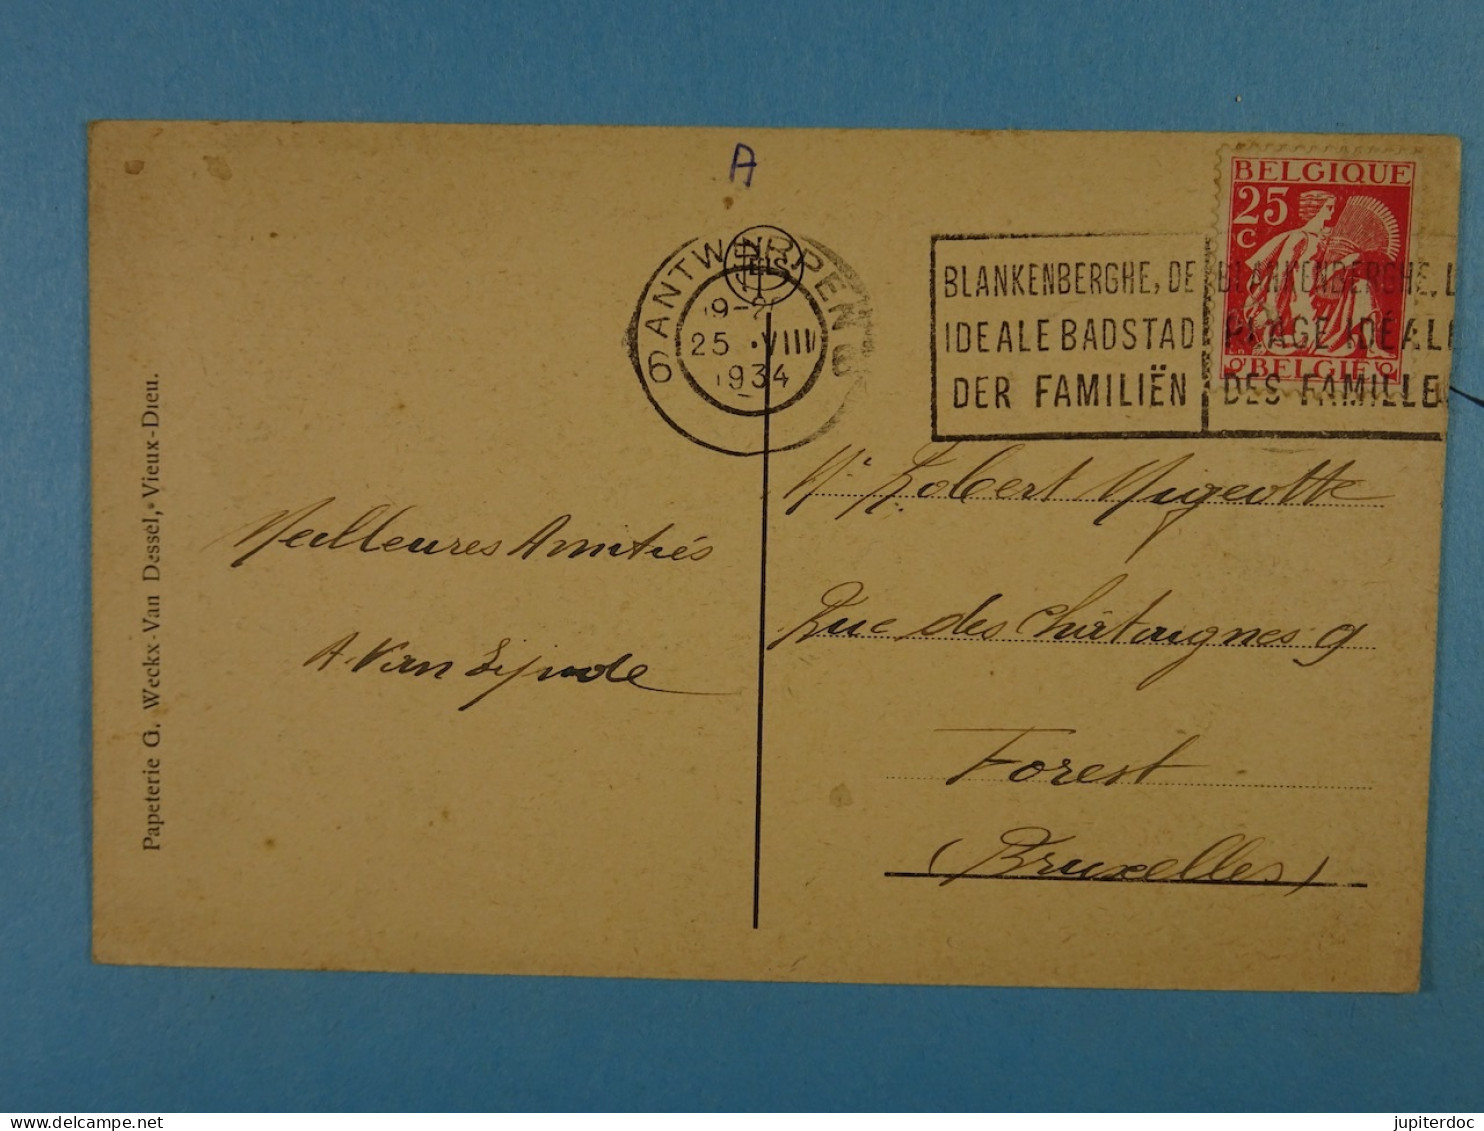 A
BELGIQUE
25
C
BELGIE
6 ANTWERPEN 6
25 VIII
1934
BLANKENBERGHE, DE
IDEALE BADSTAD
DER FAMILIËN
BLANKENBERGHE, L
PLAGE IDEAL
DES FAMILLE
Mr Robert Migeotte
Rue des Châtaignes 9
Forest
(Bruxelles)
Meilleures Amitiés
A. Van
Papeterie G. Weckx-Van Dessel, Vieux-Dieu.
delcampe.net
jupiterdoc